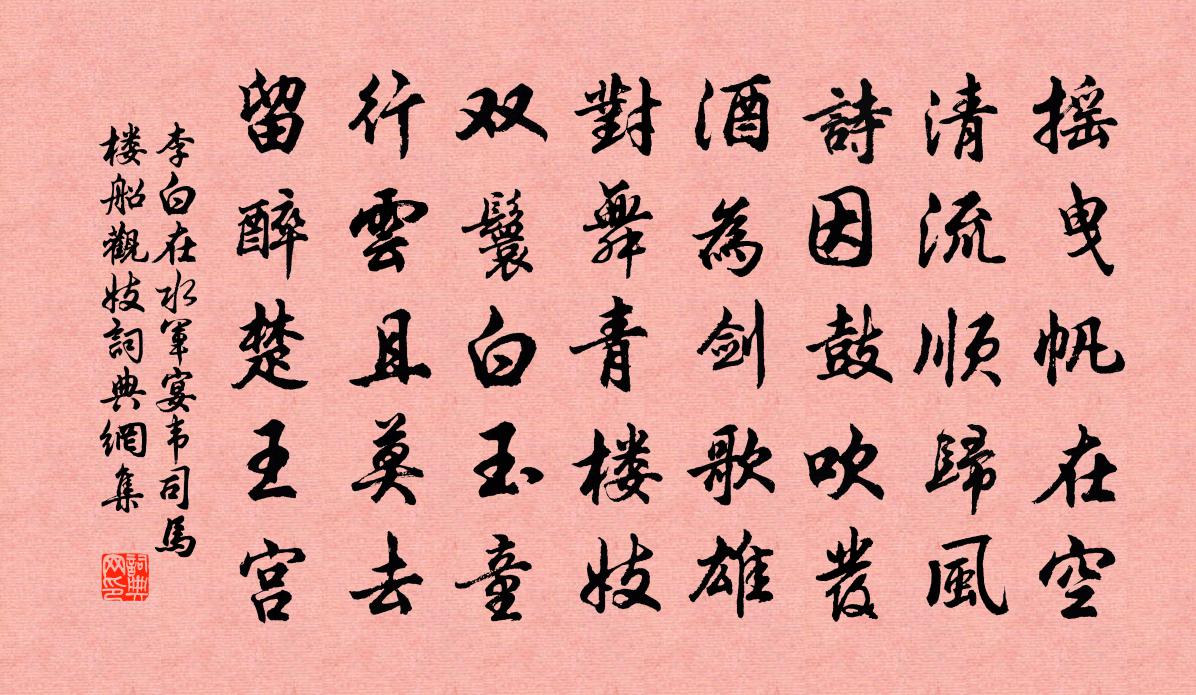 摇曳帆在空
清流順歸風
詩因鼓吹發
酒為剑歌雄
對舞青楼妓
双鬟白玉童
行雲且莫去
留醉楚王宫
李白在水軍宴韦司馬
楼船觀妓詞典網集
詞典网印